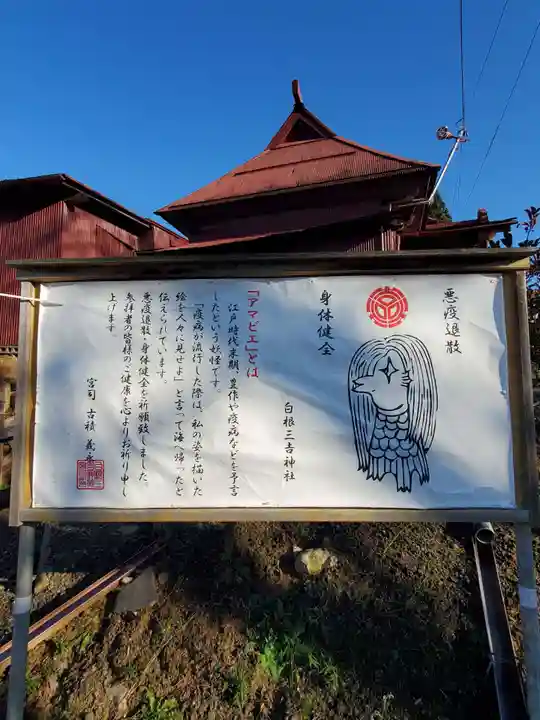 悪疫退散
身体健全
白根三吉神社
「アマビエ」とは
江戸時代末期、豊作や疫病などを予言
したという妖怪です。
「疫病が流行した際は、私の姿を描いた
絵を人々に見せよ」と言って海へ帰ったと
伝えられています。
悪疫退散・身体健全を祈願致しました。
参拝者の皆様のご健康を心よりお祈り申し
上げます
宮司 古積